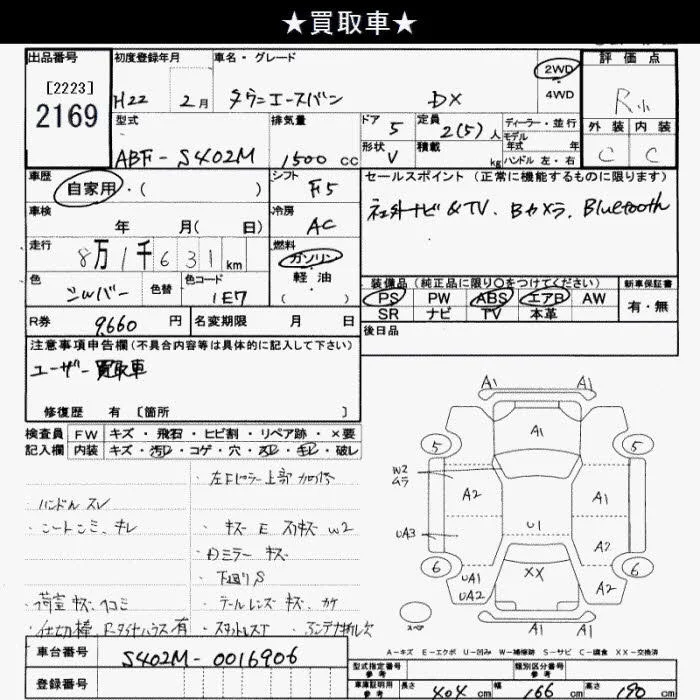 ★買取車★
出品番号
[2223]
2169
初度登録年月
H22 2月
車名・グレード
タウンエースバン DX
2WD
4WD
評価点
R
外装 内装
C C
型式
ABF-S402M
排気量
1500 CC
ドア 5
形状 V
定員 2(5) 人
積載 kg
ディーラー・並行
モデル
年式 年
ハンドル 左・右
車歴
自家用・( )
シフト
F5
セールスポイント (正常に機能するものに限ります)
社外ナビ&TV、Bカメラ、Bluetooth
車検
年 月( 日)
冷房
AC
走行
8万1千631km
燃料
ガソリン
軽油
( )
色
シルバー
色替
色コード
1E7
装備品 (純正品に限り○をつけてください)
PS PW ABS エアB AW
SR ナビ TV 本革
新車保証書
有・無
R券 9660 円
名変期限 月 日
後日品
注意事項申告欄(不具合内容等は具体的に記入して下さい)
ユーザー買取車
修復歴 有 [箇所 ]
検査員 FW キズ・飛石・ヒビ割・リペア跡・×要
記入欄 内装 キズ・汚レ・コゲ・穴・スレ・キレ・破レ
・左Fピラー上部
・ハンドル スレ
・シートシミ、キレ
・キズ E スリキズ W2
・Dミラー キズ
・下廻りS
・荷室 キズ、ヘコミ
・テールレンズ キズ、カケ
・仕切棒、Rタイヤハウス有
・スタットレスT
・アンテナホルダ欠
A1 A1
A1
5 5
W2
ムラ
A2 A1
UA3 U1 A2
6 6
UA1
UA2
XX
A2
スペア
A1 A1
A-キズ E-エクボ U-凹み W-補修跡 S-サビ C-腐食 XX-交換済
車台番号 S402M-0016906
登録番号
型式指定番号
参考
類別区分番号
参考
車庫証明用
参考
長さ 404 cm 幅 166 cm 高さ 190 cm